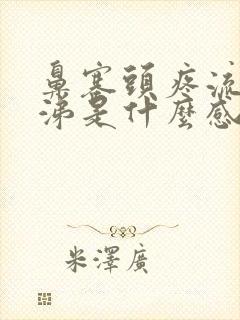 鼻塞頭疼流
涕是什麼感
米澤廣